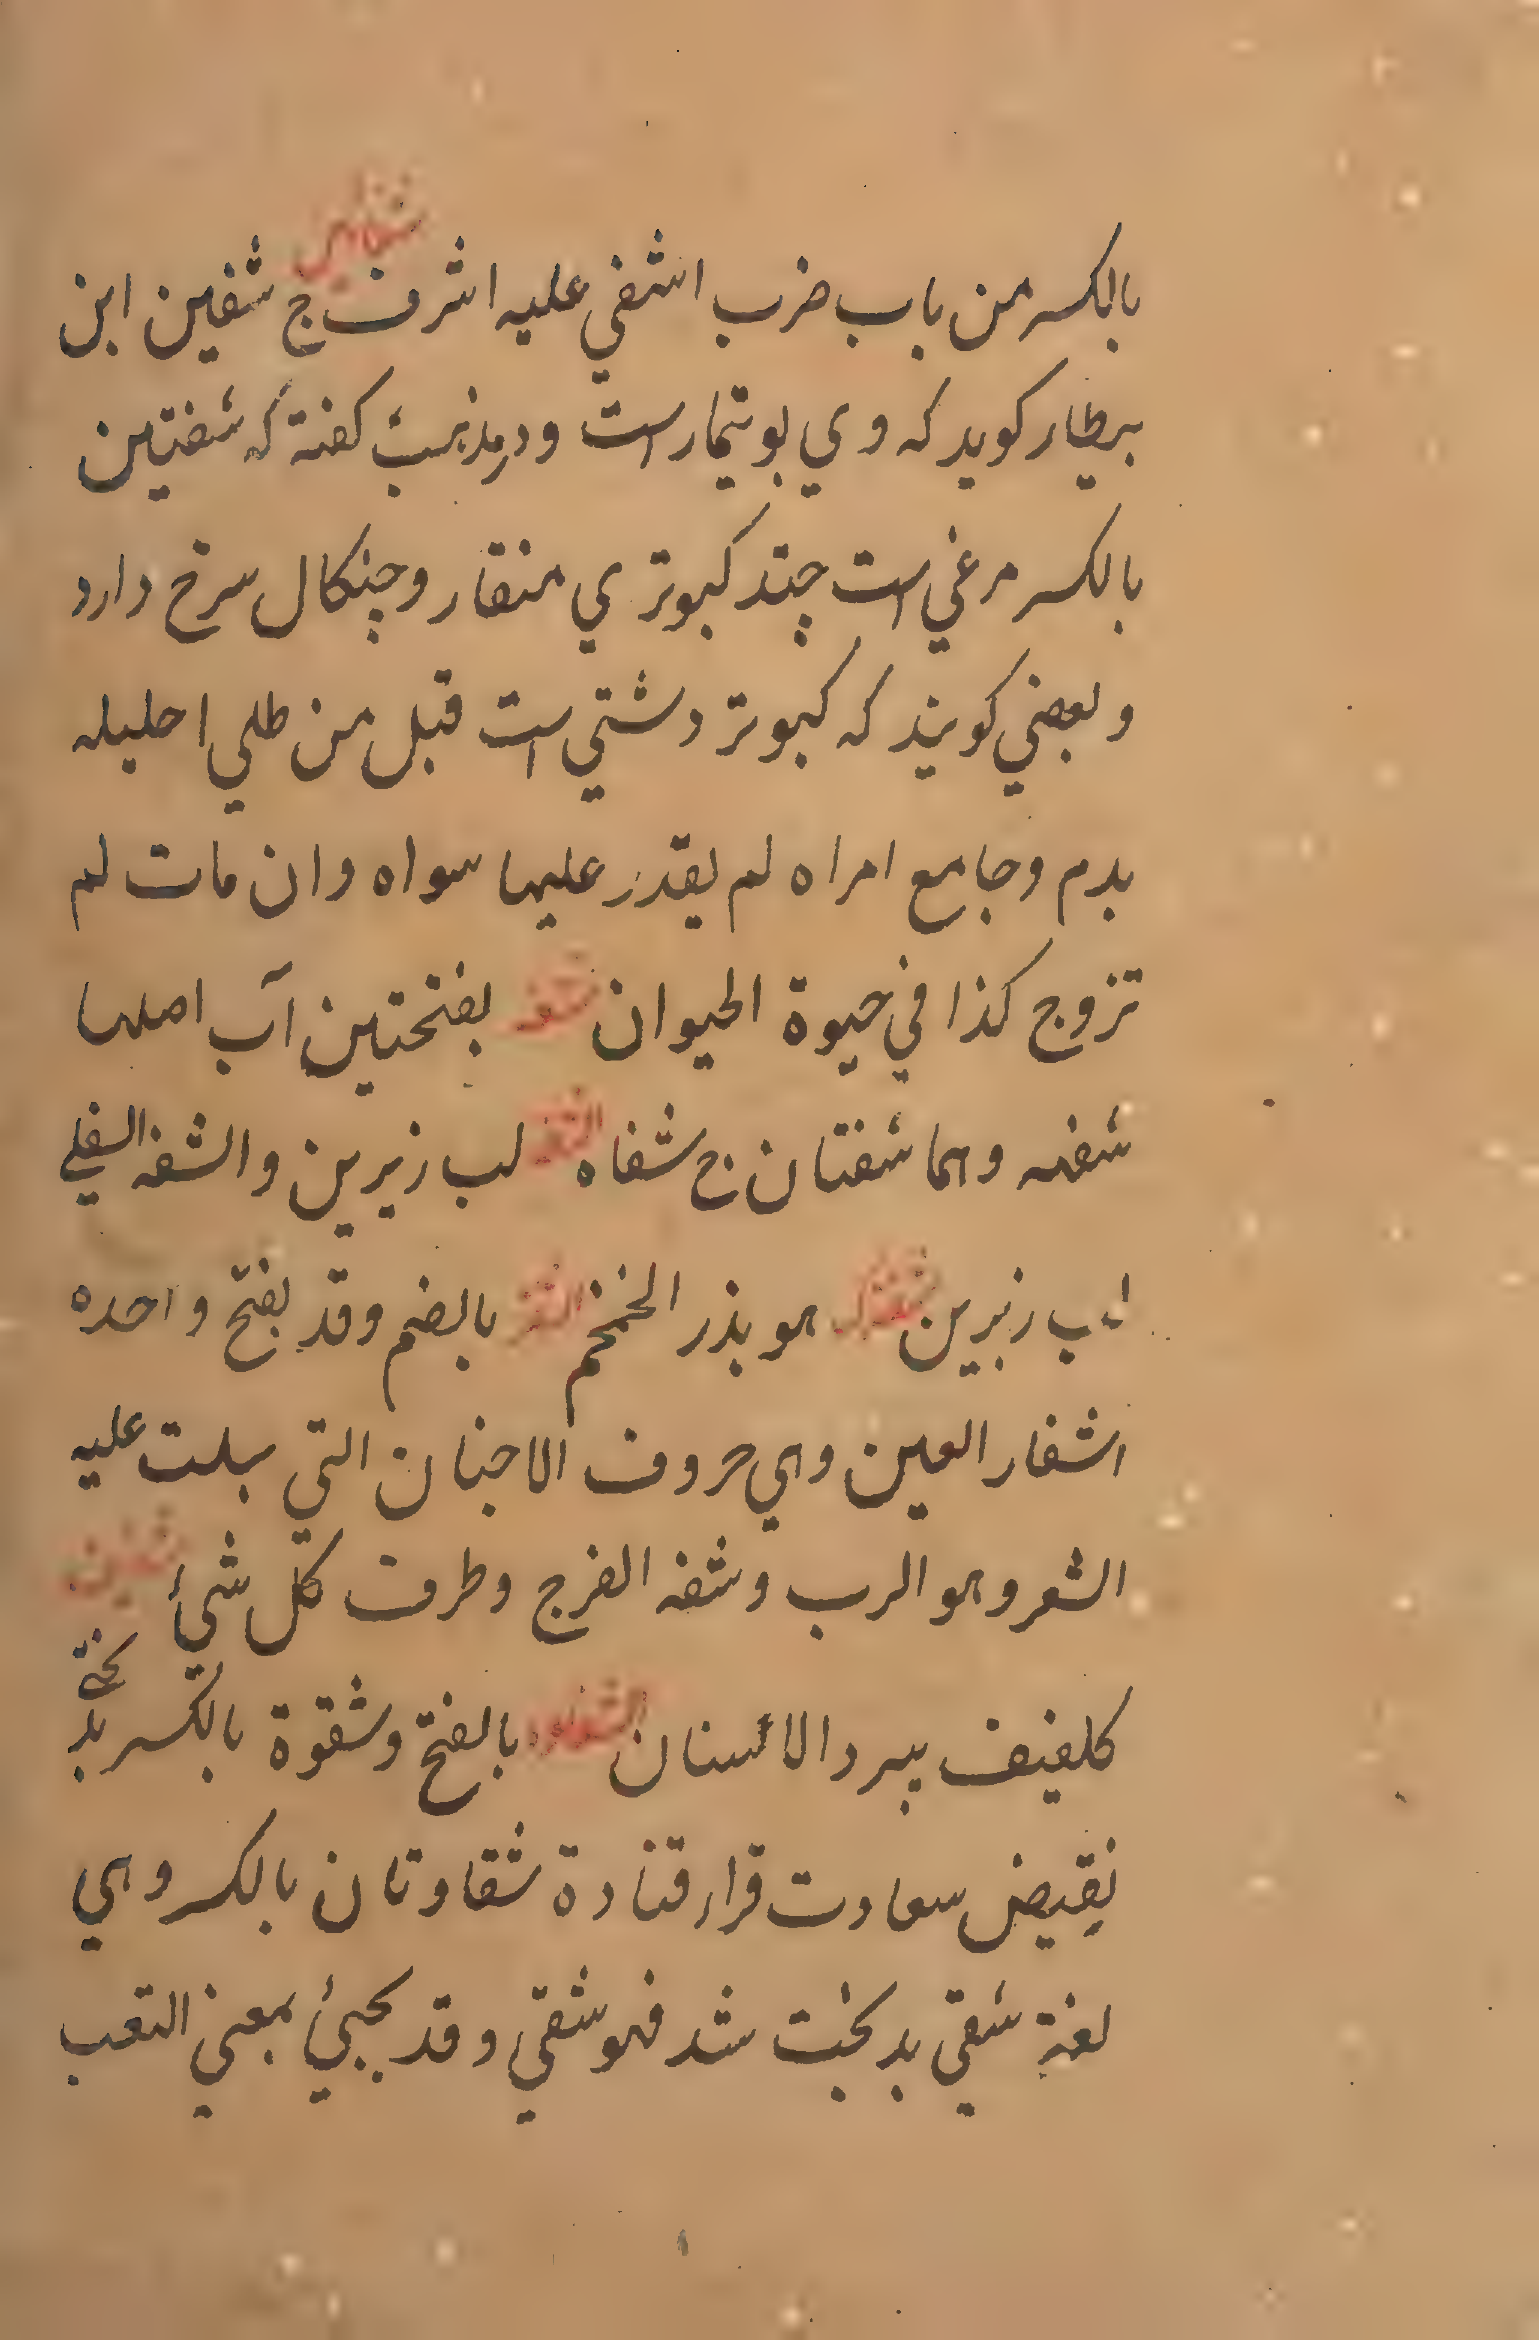 بالكسر من باب ضرب اشفي عليه اشرف ج شفين ابن
بيطار كويد كه وي بوتيمار است ودر مذهب كفته كه شفتين
بالكسر مرغي است چند كبوتري منقار و چنكال سرخ دارد
و بعضي كويند كه كبوتر دشتي است قبل من طلي احليله
بدم وجامع امراه لم يقدر عليها سواه وان مات لم
تزوج كذا في حيوة الحيوان شفه بفتحتين آب اصلها
شفهه وهما شفتان ج شفاه الشفه لب زيرين والشفه السفلي
لب زيرين هو بذر الخمخم الشفر بالضم وقد يفتح واحده
اشفار العين وهي حروف الاجفان التي سلت عليه
الشعر وهو الرب وشفه الفرج وطرف كل شيء شفنين
كلفيف ببرد الاسنان الشقاوه بالفتح وشقوة بالكسر بد بختي
نقيض سعادت قراء قتادة شقاوتان بالكسر وهي
لغة شقي بد بخت شد فهو شقي وقد يجيئ بمعني التعب